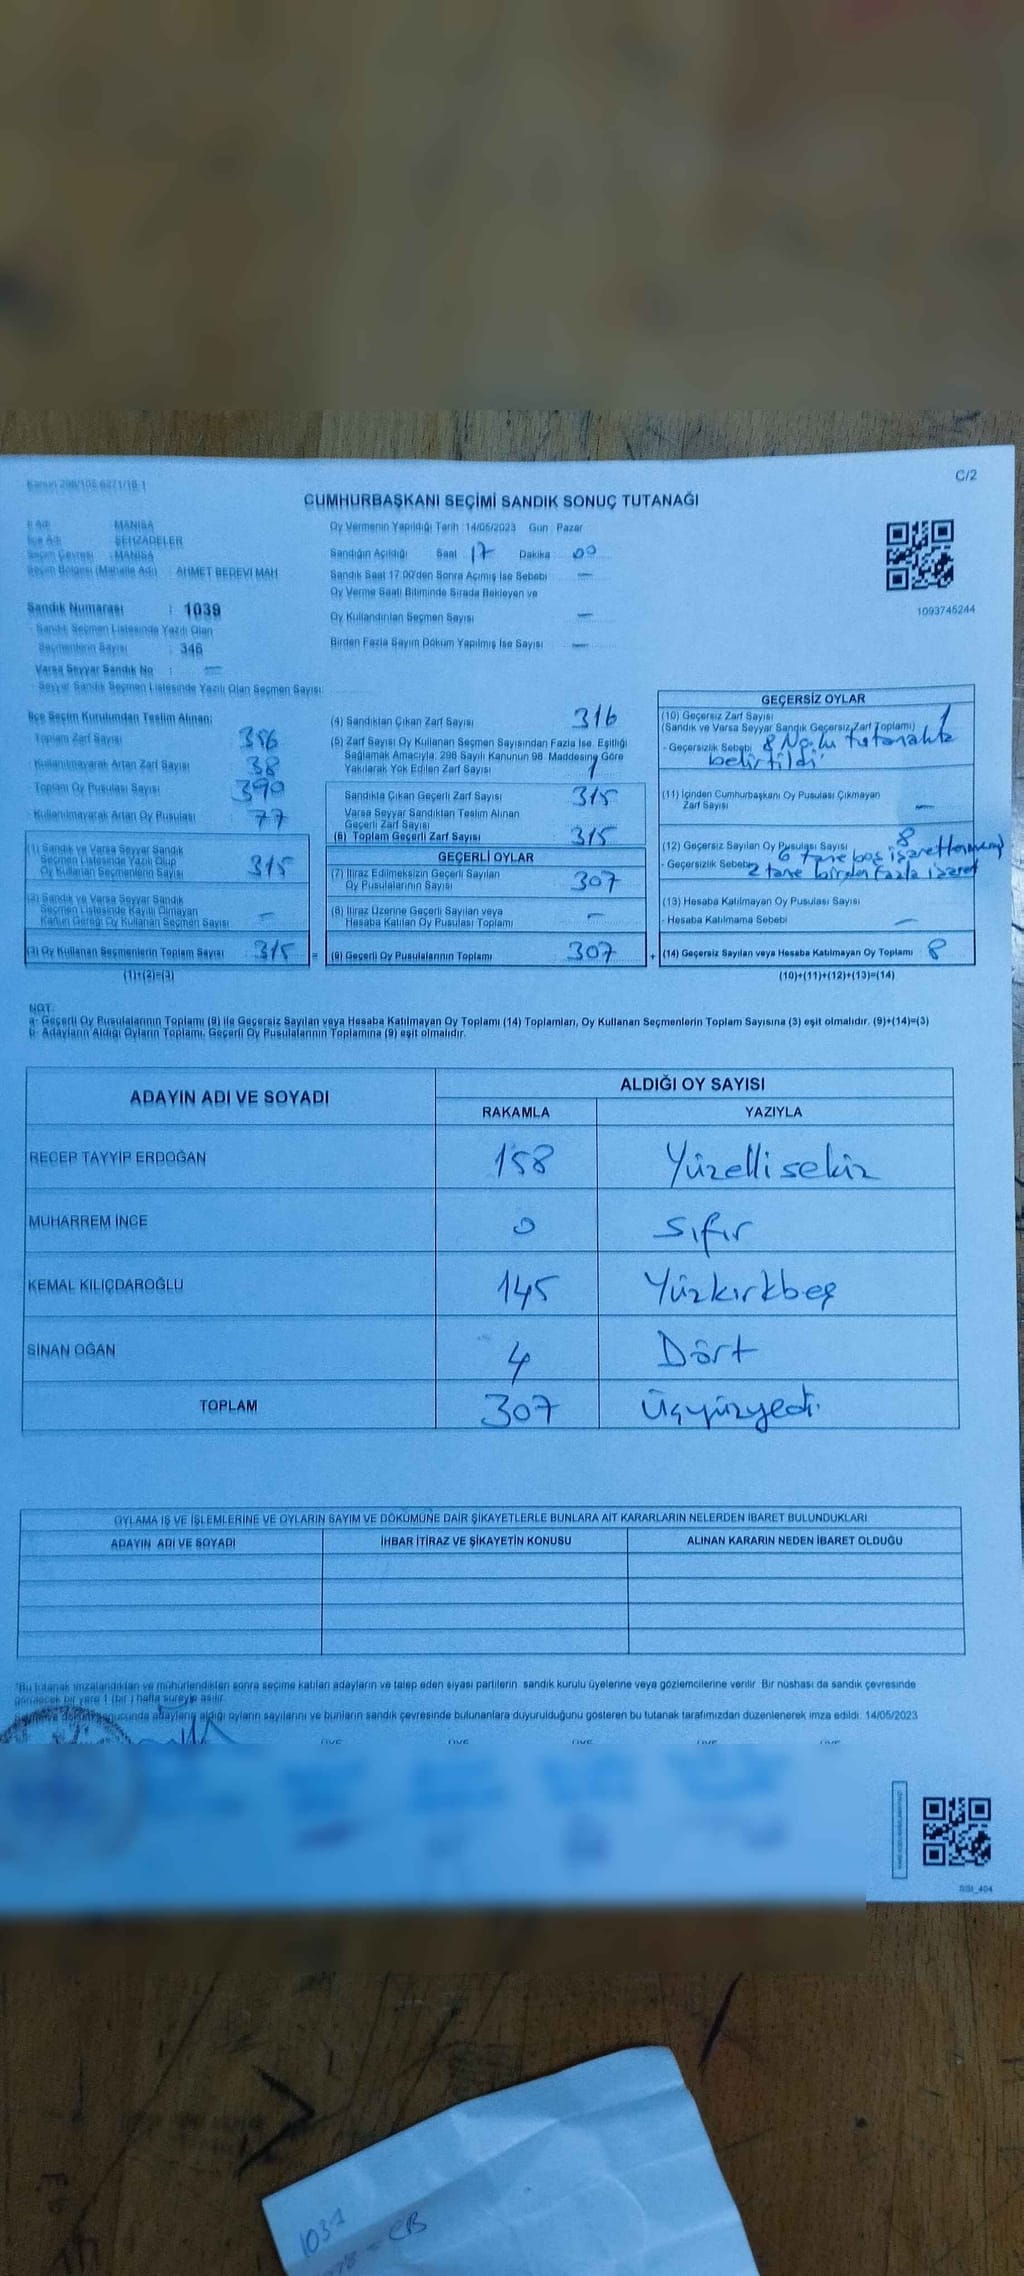 Kanun 298/105 6271/18-1
C/2
CUMHURBAŞKANI SEÇİMİ SANDIK SONUÇ TUTANAĞI
İl Adı : MANİSA
İlçe Adı : ŞEHZADELER
Seçim Çevresi : MANİSA
Seçim Bölgesi (Mahalle Adı) : AHMET BEDEVİ MAH
Sandık Numarası : 1039
Sandık Seçmen Listesinde Yazılı Olan
Seçmenlerin Sayısı : 346
Varsa Seyyar Sandık No : —
Seyyar Sandık Seçmen Listesinde Yazılı Olan Seçmen Sayısı:
Oy Vermenin Yapıldığı Tarih :14/05/2023 Gün : Pazar
Sandığın Açıldığı Saat 17 Dakika 00
Sandık Saat 17:00'den Sonra Açılmış İse Sebebi —
Oy Verme Saati Bitiminde Sırada Bekleyen ve
Oy Kullandırılan Seçmen Sayısı —
Birden Fazla Sayım Döküm Yapılmış İse Sayısı —
1093745244
İlçe Seçim Kurulundan Teslim Alınan:
Toplam Zarf Sayısı
Kullanılmayarak Artan Zarf Sayısı 38
Toplam Oy Pusulası Sayısı 390
Kullanılmayarak Artan Oy Pusulası 77
(1) Sandık ve Varsa Seyyar Sandık
Seçmen Listesinde Yazılı Olup
Oy Kullanan Seçmenlerin Sayısı 315
(2) Sandık ve Varsa Seyyar Sandık
Seçmen Listesinde Kayıtlı Olmayan
Kanun Gereği Oy Kullanan Seçmen Sayısı —
(3) Oy Kullanan Seçmenlerin Toplam Sayısı 315 =
(1)+(2)=(3)
(4) Sandıktan Çıkan Zarf Sayısı 316
(5) Zarf Sayısı Oy Kullanan Seçmen Sayısından Fazla İse, Eşitliği
Sağlamak Amacıyla, 298 Sayılı Kanunun 98. Maddesine Göre
Yakılarak Yok Edilen Zarf Sayısı 1
Sandıkta Çıkan Geçerli Zarf Sayısı 315
Varsa Seyyar Sandıktan Teslim Alınan
Geçerli Zarf Sayısı
(6) Toplam Geçerli Zarf Sayısı 315
GEÇERLİ OYLAR
(7) İtiraz Edilmeksizin Geçerli Sayılan
Oy Pusulalarının Sayısı 307
(8) İtiraz Üzerine Geçerli Sayılan veya
Hesaba Katılan Oy Pusulası Toplamı —
(9) Geçerli Oy Pusulalarının Toplamı 307 +
GEÇERSİZ OYLAR
(10) Geçersiz Zarf Sayısı 1
(Sandık ve Varsa Seyyar Sandık Geçersiz Zarf Toplamı)
- Geçersizlik Sebebi 8 No.lu tutanakta
belirtildi
(11) İçinden Cumhurbaşkanı Oy Pusulası Çıkmayan
Zarf Sayısı —
(12) Geçersiz Sayılan Oy Pusulası Sayısı 8
6 tane boş işaretlenmemiş
- Geçersizlik Sebebi 2 tane birden fazla işaret
(13) Hesaba Katılmayan Oy Pusulası Sayısı
- Hesaba Katılmama Sebebi —
(14) Geçersiz Sayılan veya Hesaba Katılmayan Oy Toplamı 8
(10)+(11)+(12)+(13)=(14)
NOT:
a- Geçerli Oy Pusulalarının Toplamı (9) ile Geçersiz Sayılan veya Hesaba Katılmayan Oy Toplamı (14) Toplamları, Oy Kullanan Seçmenlerin Toplam Sayısına (3) eşit olmalıdır. (9)+(14)=(3)
b- Adayların Aldığı Oyların Toplamı, Geçerli Oy Pusulalarının Toplamına (9) eşit olmalıdır.
ADAYIN ADI VE SOYADI
ALDIĞI OY SAYISI
RAKAMLA YAZIYLA
RECEP TAYYİP ERDOĞAN 158 Yüzellisekiz
MUHARREM İNCE 0 Sıfır
KEMAL KILIÇDAROĞLU 145 Yüzkırkbeş
SİNAN OĞAN 4 Dört
TOPLAM 307 Üçyüzyedi
OYLAMA İŞ VE İŞLEMLERİNE VE OYLARIN SAYIM VE DÖKÜMÜNE DAİR ŞİKAYETLERLE BUNLARA AİT KARARLARIN NELERDEN İBARET BULUNDUKLARI
ADAYIN ADI VE SOYADI İHBAR İTİRAZ VE ŞİKAYETİN KONUSU ALINAN KARARIN NEDEN İBARET OLDUĞU
*Bu tutanak imzalandıktan ve mühürlendikten sonra seçime katılan adayların ve talep eden siyasi partilerin sandık kurulu üyelerine veya gözlemcilerine verilir. Bir nüshası da sandık çevresinde
görülecek bir yere 1 (bir ) hafta süreyle asılır.
sonucunda adayların aldığı oyların sayılarını ve bunların sandık çevresinde bulunanlara duyurulduğunu gösteren bu tutanak tarafımızdan düzenlenerek imza edildi. 14/05/2023
ÜYE ÜYE ÜYE ÜYE ÜYE
SSI_404
CB